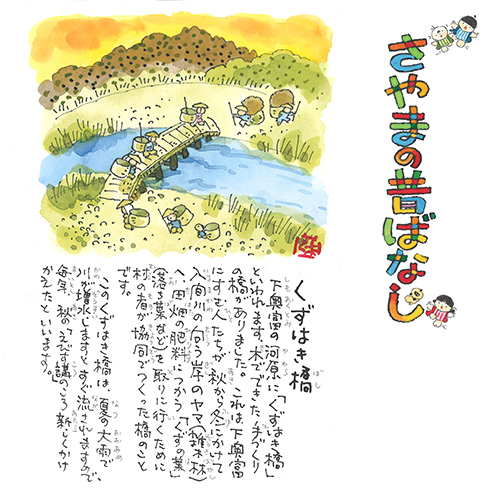 さやまの昔ばなし
くずはき橋
下奥富の河原に「くずはき橋」
といわれます、木でできた手づくり
の橋がありました。これは、下奥富
にすむ人たちが、秋から冬にかけて
入間川の向う岸のヤマ(雑木林)
へ、田畑の肥料につかう「くずの葉」
(落ち葉など)を取りに行くために
村の者が協同でつくった橋のこと
です。
このくずはき橋は、夏の大雨で
川が増水しますと、すぐ流されますので、
毎年、秋の「えびす講」のころ新しくかけ
かえたといいます。